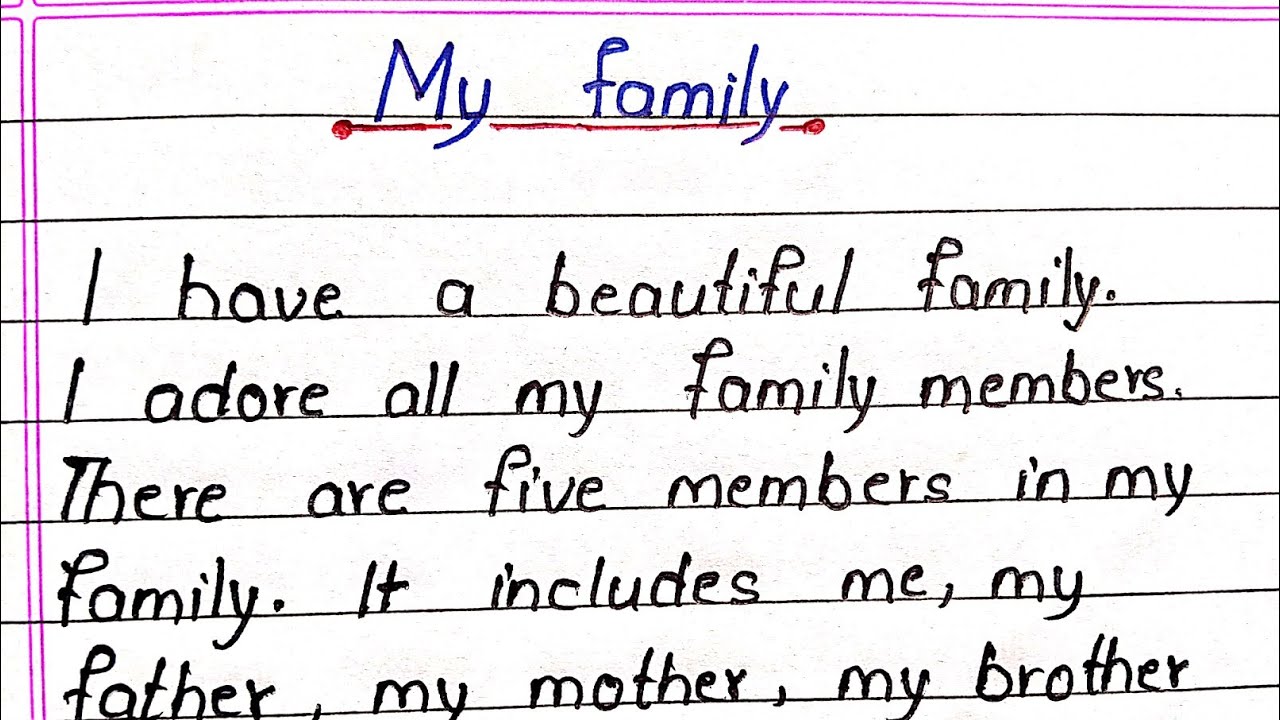 My family
I have a beautiful family.
I adore all my family members.
There are five members in my
family. It includes me, my
father, my mother, my brother